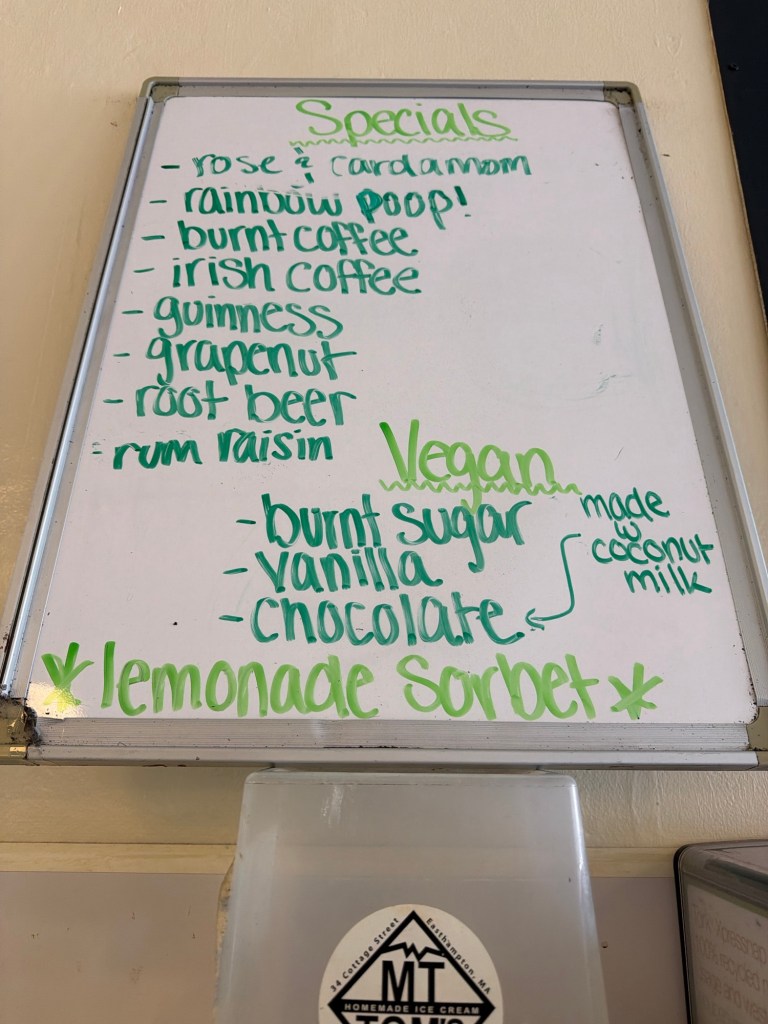 Specials
- rose & cardamom
- rainbow poop!
- burnt coffee
- irish coffee
- guinness
- grapenut
- root beer
- rum raisin
Vegan
- burnt sugar
- vanilla
- chocolate
made
w
coconut
milk
* lemonade Sorbet *
34 Cottage Street
Easthampton, MA
MT
HOMEMADE ICE CREAM
TOM'S